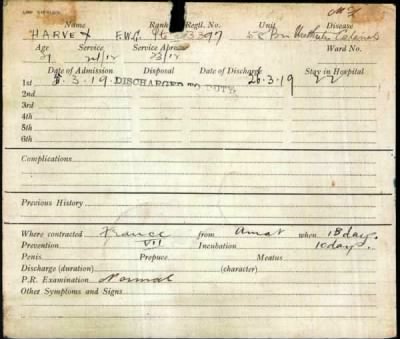 Name Rank Regtl. No. Unit Disease
HARVEY F.W.G. Pte 3397 58 Bn
Age Service Service Abroad Ward No.
21
Date of Admission Disposal Date of Discharge Stay in Hospital
1st 5.3.19. DISCHARGED TO DUTY 26.3.19 22
2nd
3rd
4th
5th
6th
Complications
Previous History
Where contracted France from Amat when 18 days.
Prevention VII Incubation 10 days.
Penis Prepuce Meatus
Discharge (duration) (character)
P.R. Examination Normal
Other Symptoms and Signs